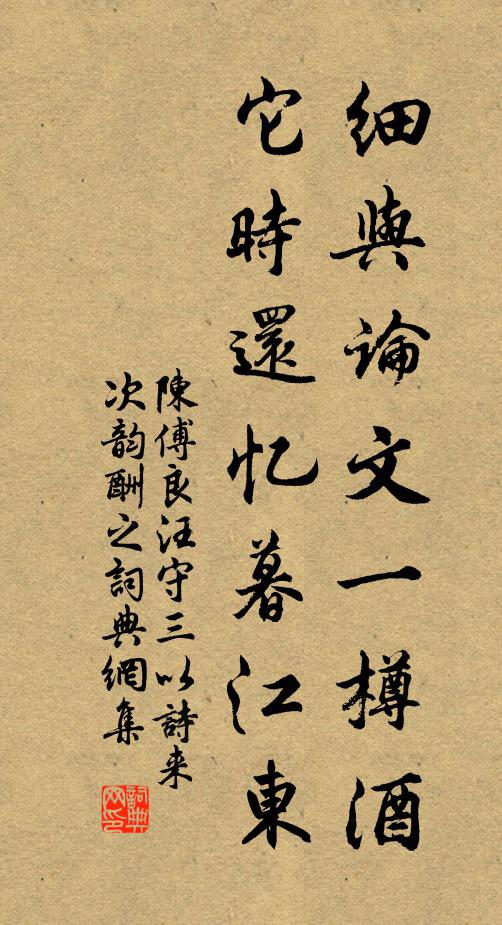 細與論文一樽酒
它時還忆暮江東
陳傅良汪守三以詩来
次韵酬之詞典網集
詞典网印